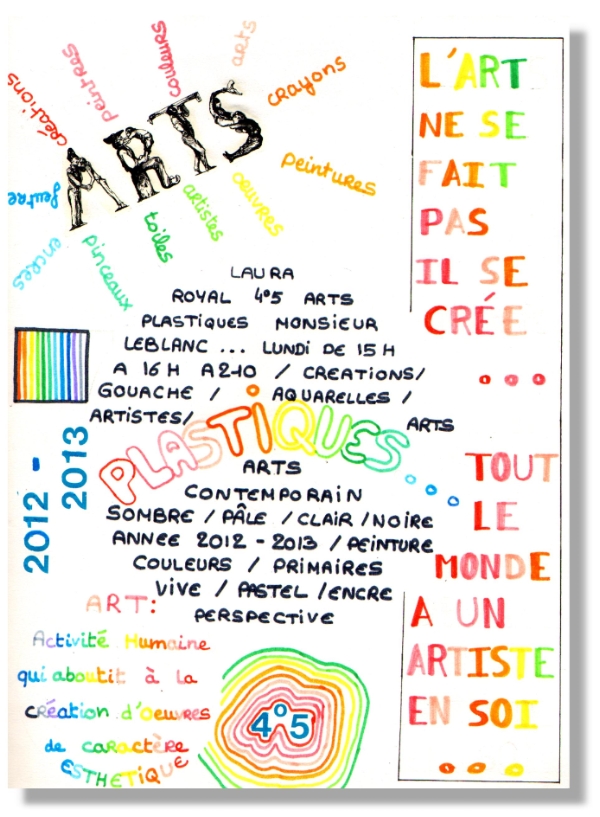 créations
peintres
couleurs
arts
crayons
peintures
ARTS
feutre
encres
pinceaux
toiles
artistes
oeuvres
LAURA
ROYAL 4°5 ARTS
PLASTIQUES MONSIEUR
LEBLANC ... LUNDI DE 15 H
A 16 H A210 / CREATIONS/
GOUACHE / AQUARELLES /
ARTISTES/
ARTS
PLASTIQUES...
ARTS
CONTEMPORAIN
SOMBRE / PÂLE / CLAIR / NOIRE
ANNEE 2012 - 2013 / PEINTURE
COULEURS / PRIMAIRES
VIVE / PASTEL / ENCRE
PERSPECTIVE
2012 -
2013
ART:
Activité Humaine
qui aboutit à la
création d'oeuvres
de caractère
ESTHETIQUE
4°5
L'ART
NE SE
FAIT
PAS
IL SE
CRÉE
...
TOUT
LE
MONDE
A UN
ARTISTE
EN SOI
...